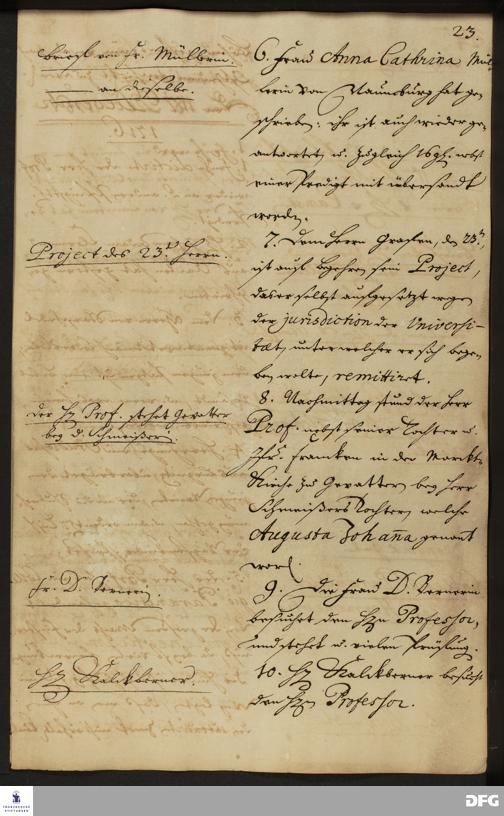 23.
Brieff von Fr. Müllerin.
— an dieselbe.
6. Frau Anna Cathrina Mül-
lerin von Naumburg hat ge-
schrieben: ihr ist auch wieder ge-
antwortet u. zugleich 16 gl. nebst
einer Predigt mit übersandt
worden.
Project des 23. Herrn.
7. Dem Herrn Grafen, den 23.,
ist auf Begehren sein Project,
das er selbst aufgesetzt wegen
der jurisdiction der Universi-
tæt, unter welcher er sich bege-
ben wolte, remittiret.
Der H. Prof. stehet Gevatter
bey D. Schmeißer.
8. Nachmittag stund der Herr
Prof. nebst seiner Tochter u.
Jfr. Francken in der Marckt-
Kirche zu Gevattern bey Herr
Schmeißers Tochter, welche
Augusta Johanna genant
word.
Fr. D.
9. Die Frau D.
besuchet den Hn Professor,
und stehet u. vielen Prüfung.
H. Kalckberner.
10. H. Kalckberner besucht
den Hn Professor.
FRANCKESCHE
STIFTUNGEN
DFG